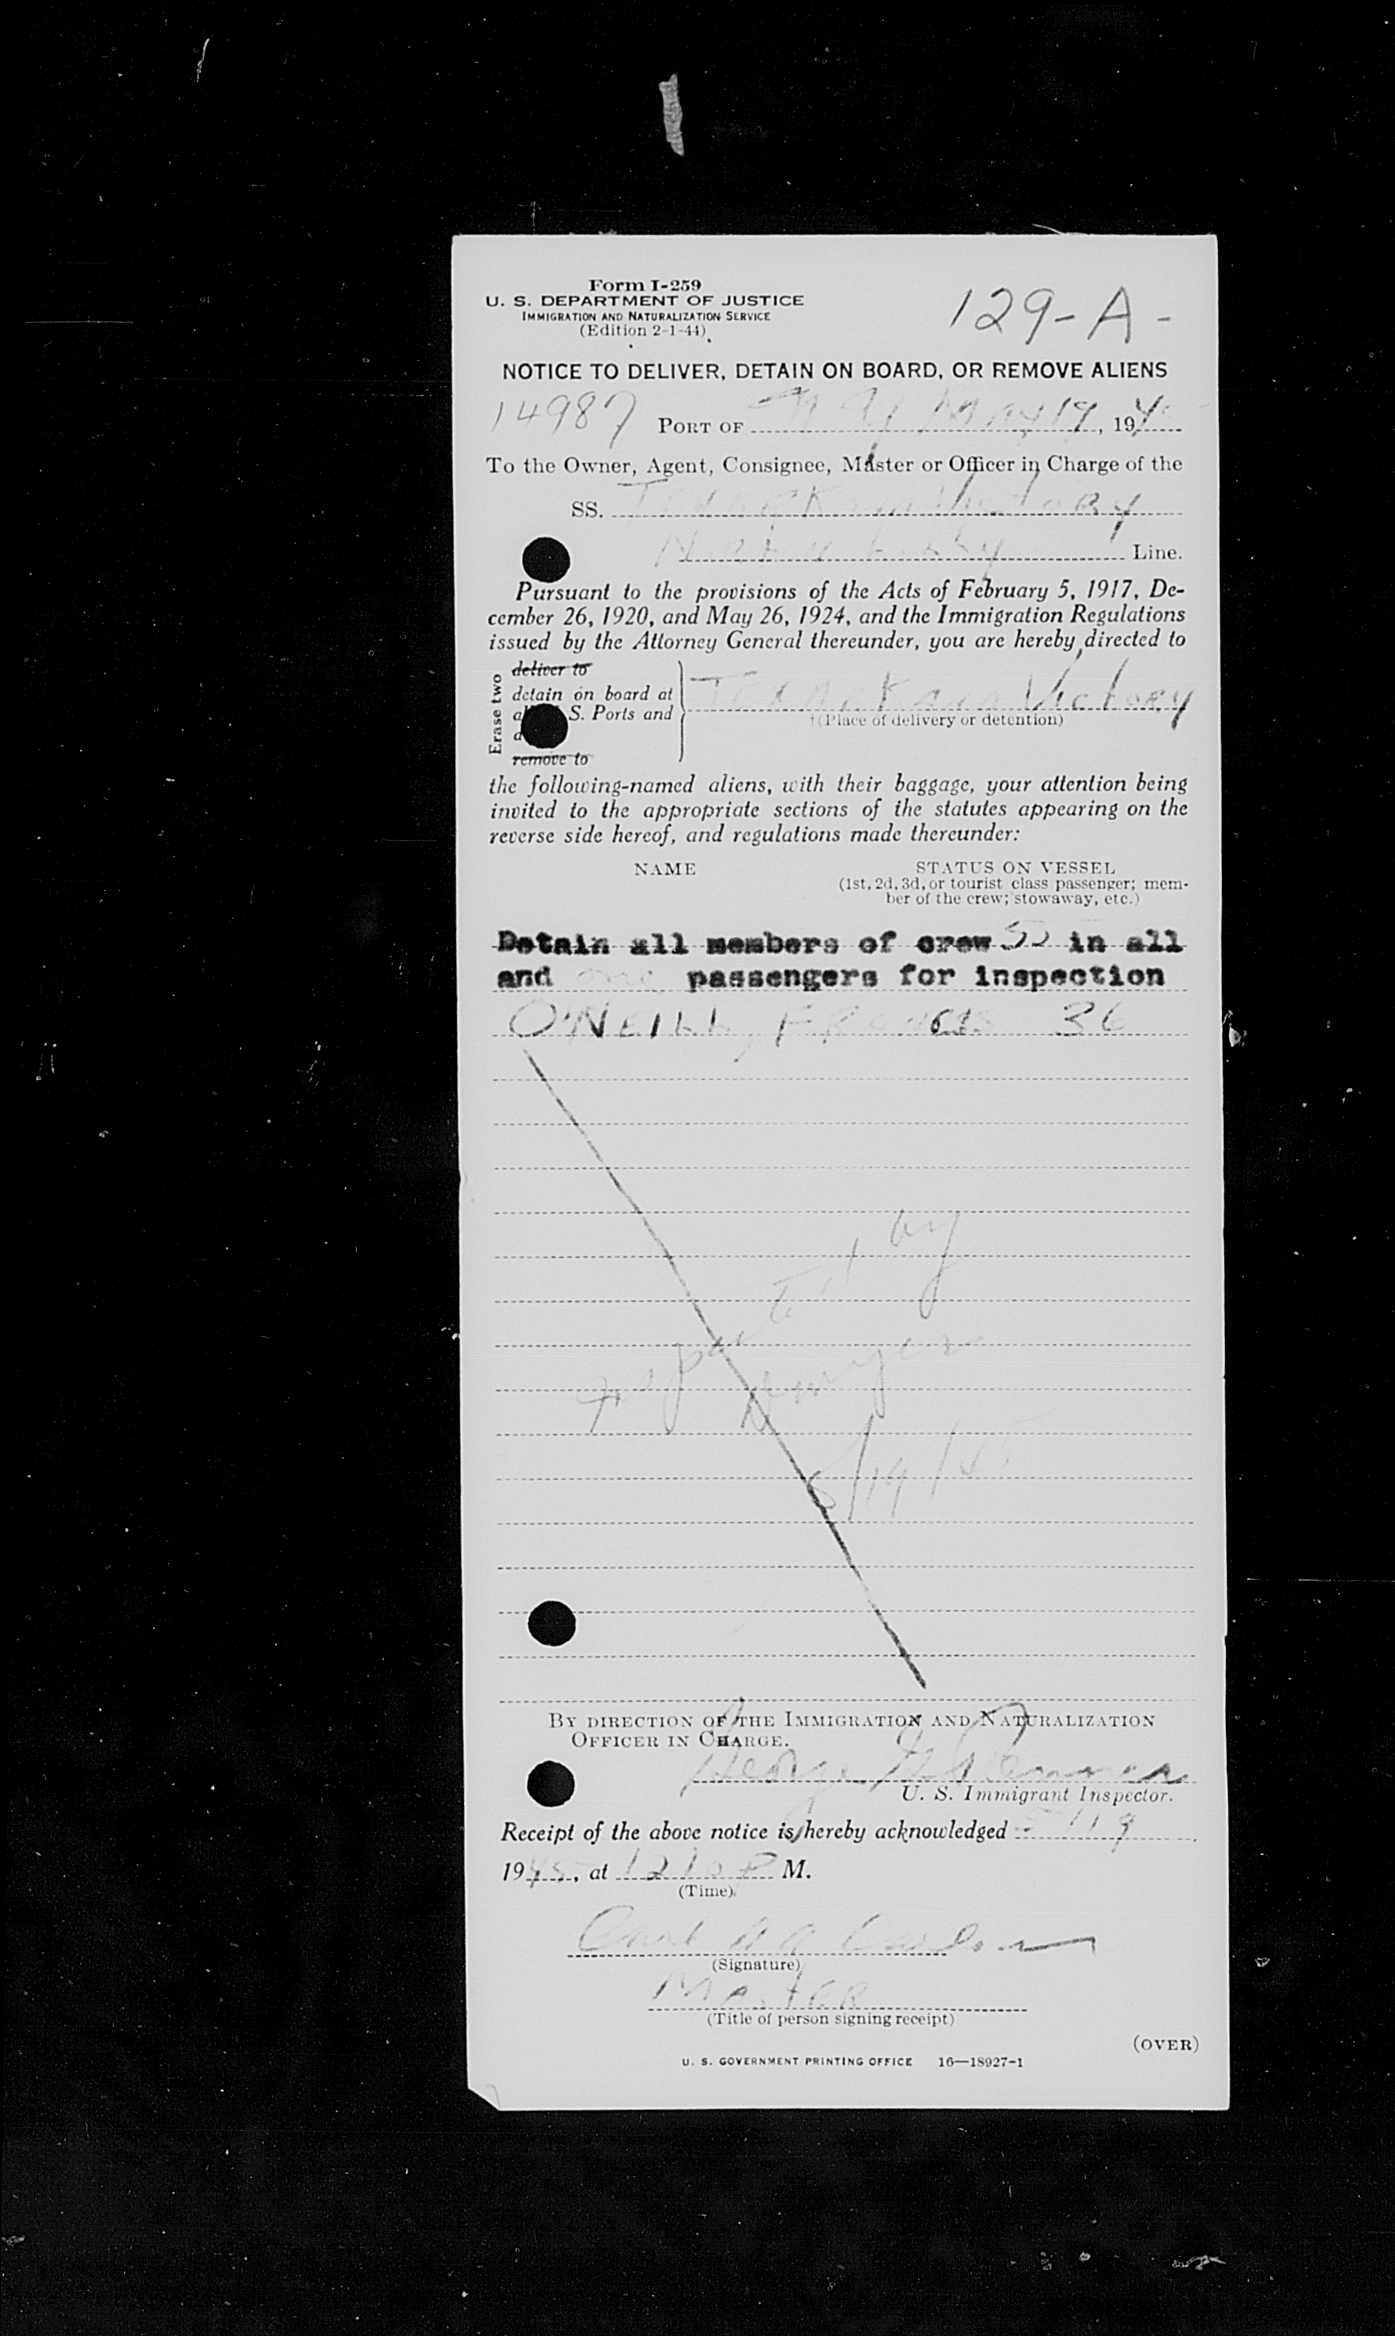 Form I-259
U. S. DEPARTMENT OF JUSTICE
IMMIGRATION AND NATURALIZATION SERVICE
(Edition 2-1-44)
129-A-
NOTICE TO DELIVER, DETAIN ON BOARD, OR REMOVE ALIENS
14987 PORT OF N. Y. May 19, 1945
To the Owner, Agent, Consignee, Master or Officer in Charge of the
SS. Texarkana Victory
Line.
Pursuant to the provisions of the Acts of February 5, 1917, De-
cember 26, 1920, and May 26, 1924, and the Immigration Regulations
issued by the Attorney General thereunder, you are hereby directed to
Erase two
deliver to
detain on board at
S. Ports and
remove to
Texarkana Victory
(Place of delivery or detention)
the following-named aliens, with their baggage, your attention being
invited to the appropriate sections of the statutes appearing on the
reverse side hereof, and regulations made thereunder:
NAME STATUS ON VESSEL
(1st, 2d, 3d, or tourist class passenger; mem-
ber of the crew; stowaway, etc.)
Detain all members of crew in all
and one passengers for inspection
O'NEILL, FRANCIS 36
by
5/19/45
BY DIRECTION OF THE IMMIGRATION AND NATURALIZATION
OFFICER IN CHARGE.
George
U. S. Immigrant Inspector.
Receipt of the above notice is hereby acknowledged 5/19
1945, at 1210 P M.
(Time)
Carl
(Signature)
Master
(Title of person signing receipt)
(OVER)
U. S. GOVERNMENT PRINTING OFFICE 16—18927-1